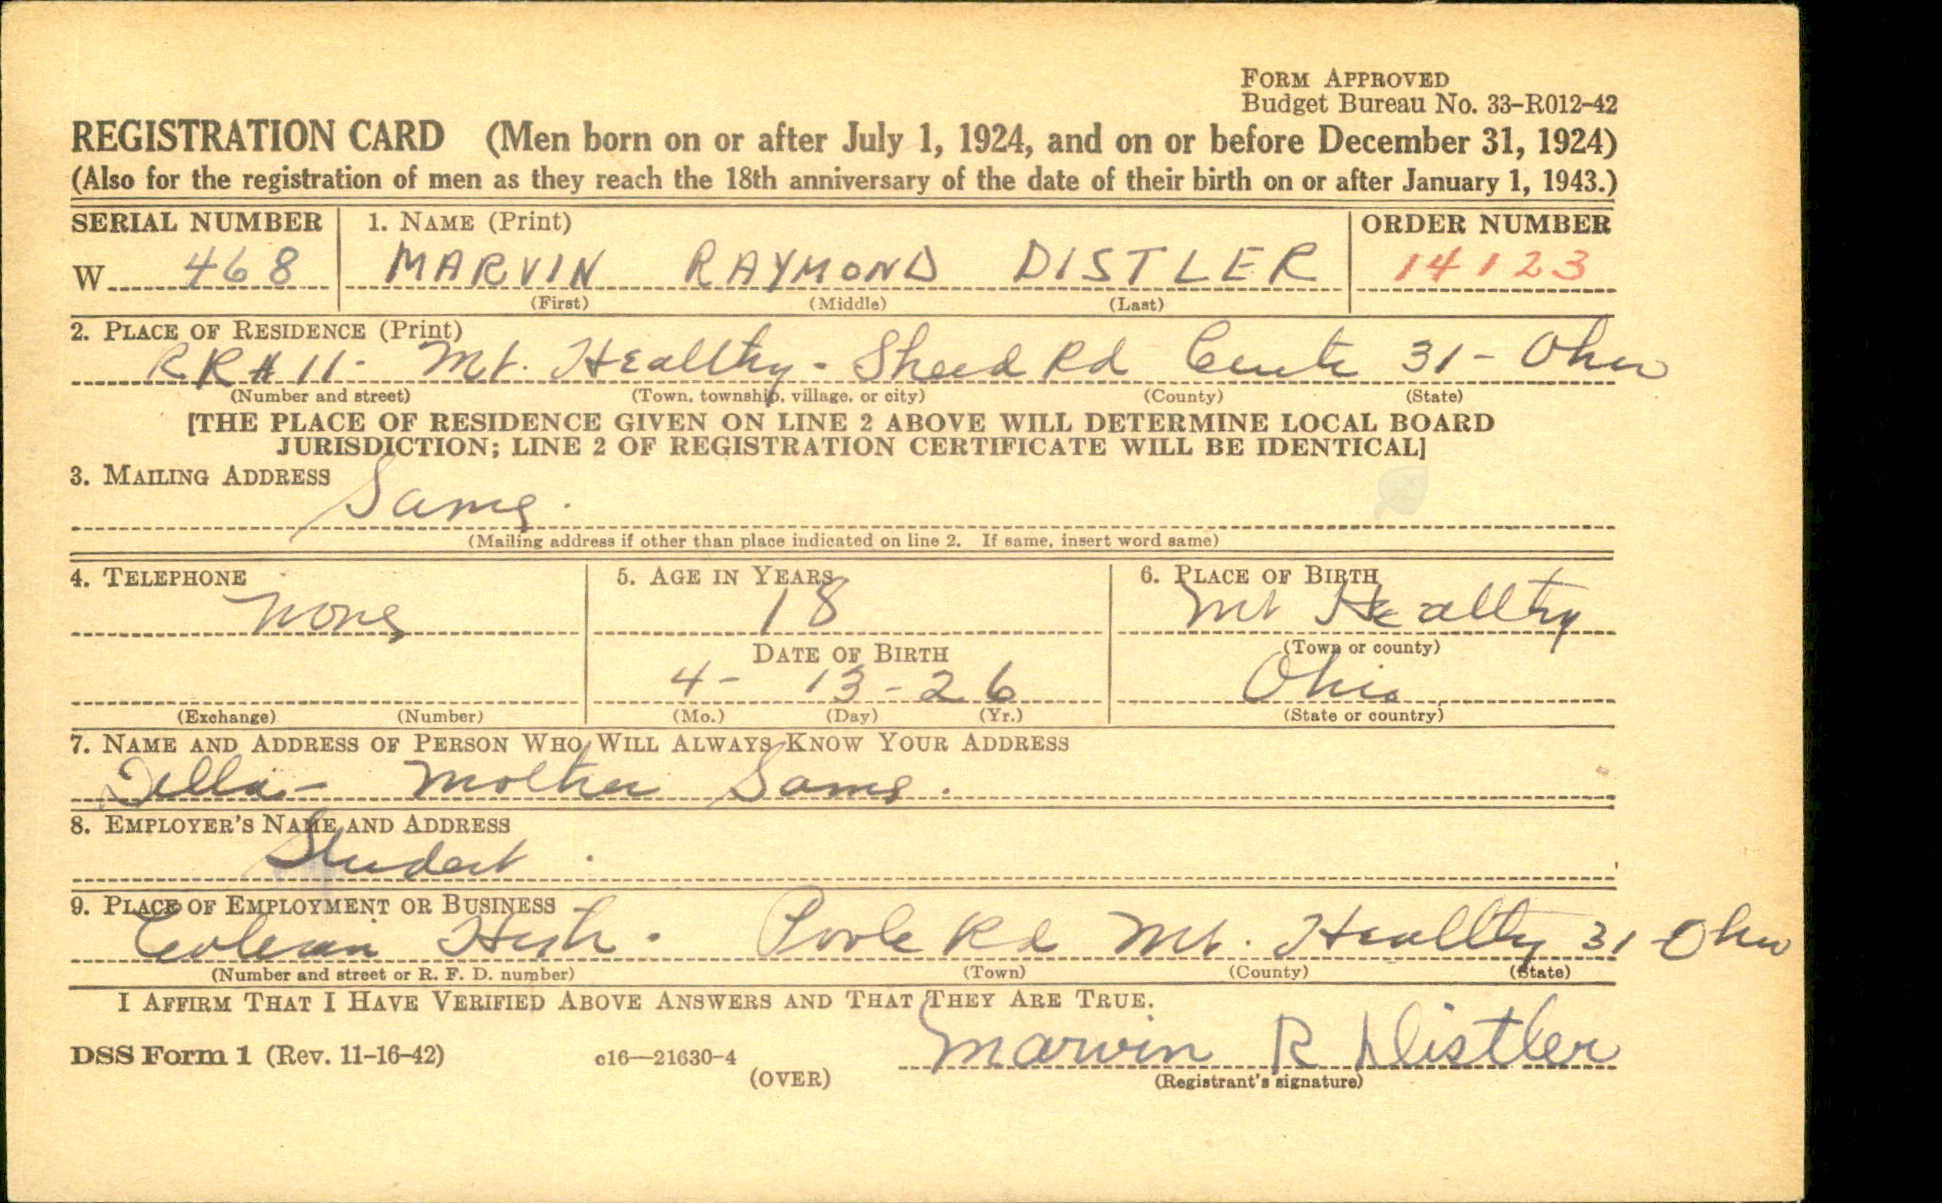 FORM APPROVED
Budget Bureau No. 33-R012-42
REGISTRATION CARD (Men born on or after July 1, 1924, and on or before December 31, 1924)
(Also for the registration of men as they reach the 18th anniversary of the date of their birth on or after January 1, 1943.)
SERIAL NUMBER 1. NAME (Print) ORDER NUMBER
W 468 MARVIN RAYMOND DISTLER 14123
(First) (Middle) (Last)
2. PLACE OF RESIDENCE (Print)
RR # 11 - Mt. Healthy - Rd 31 - Ohio
(Number and street) (Town, township, village, or city) (County) (State)
[THE PLACE OF RESIDENCE GIVEN ON LINE 2 ABOVE WILL DETERMINE LOCAL BOARD
JURISDICTION; LINE 2 OF REGISTRATION CERTIFICATE WILL BE IDENTICAL]
3. MAILING ADDRESS
Same.
(Mailing address if other than place indicated on line 2. If same, insert word same)
4. TELEPHONE 5. AGE IN YEARS 6. PLACE OF BIRTH
None 18 Mt Healthy
DATE OF BIRTH (Town or county)
4 - 13 - 26 Ohio
(Exchange) (Number) (Mo.) (Day) (Yr.) (State or country)
7. NAME AND ADDRESS OF PERSON WHO WILL ALWAYS KNOW YOUR ADDRESS
Mother Same.
8. EMPLOYER'S NAME AND ADDRESS
Student
9. PLACE OF EMPLOYMENT OR BUSINESS
High. Poole Rd Mt. Healthy 31 Ohio
(Number and street or R. F. D. number) (Town) (County) (State)
I AFFIRM THAT I HAVE VERIFIED ABOVE ANSWERS AND THAT THEY ARE TRUE.
Marvin R Distler
DSS Form 1 (Rev. 11-16-42) c16—21630-4
(OVER) (Registrant's signature)